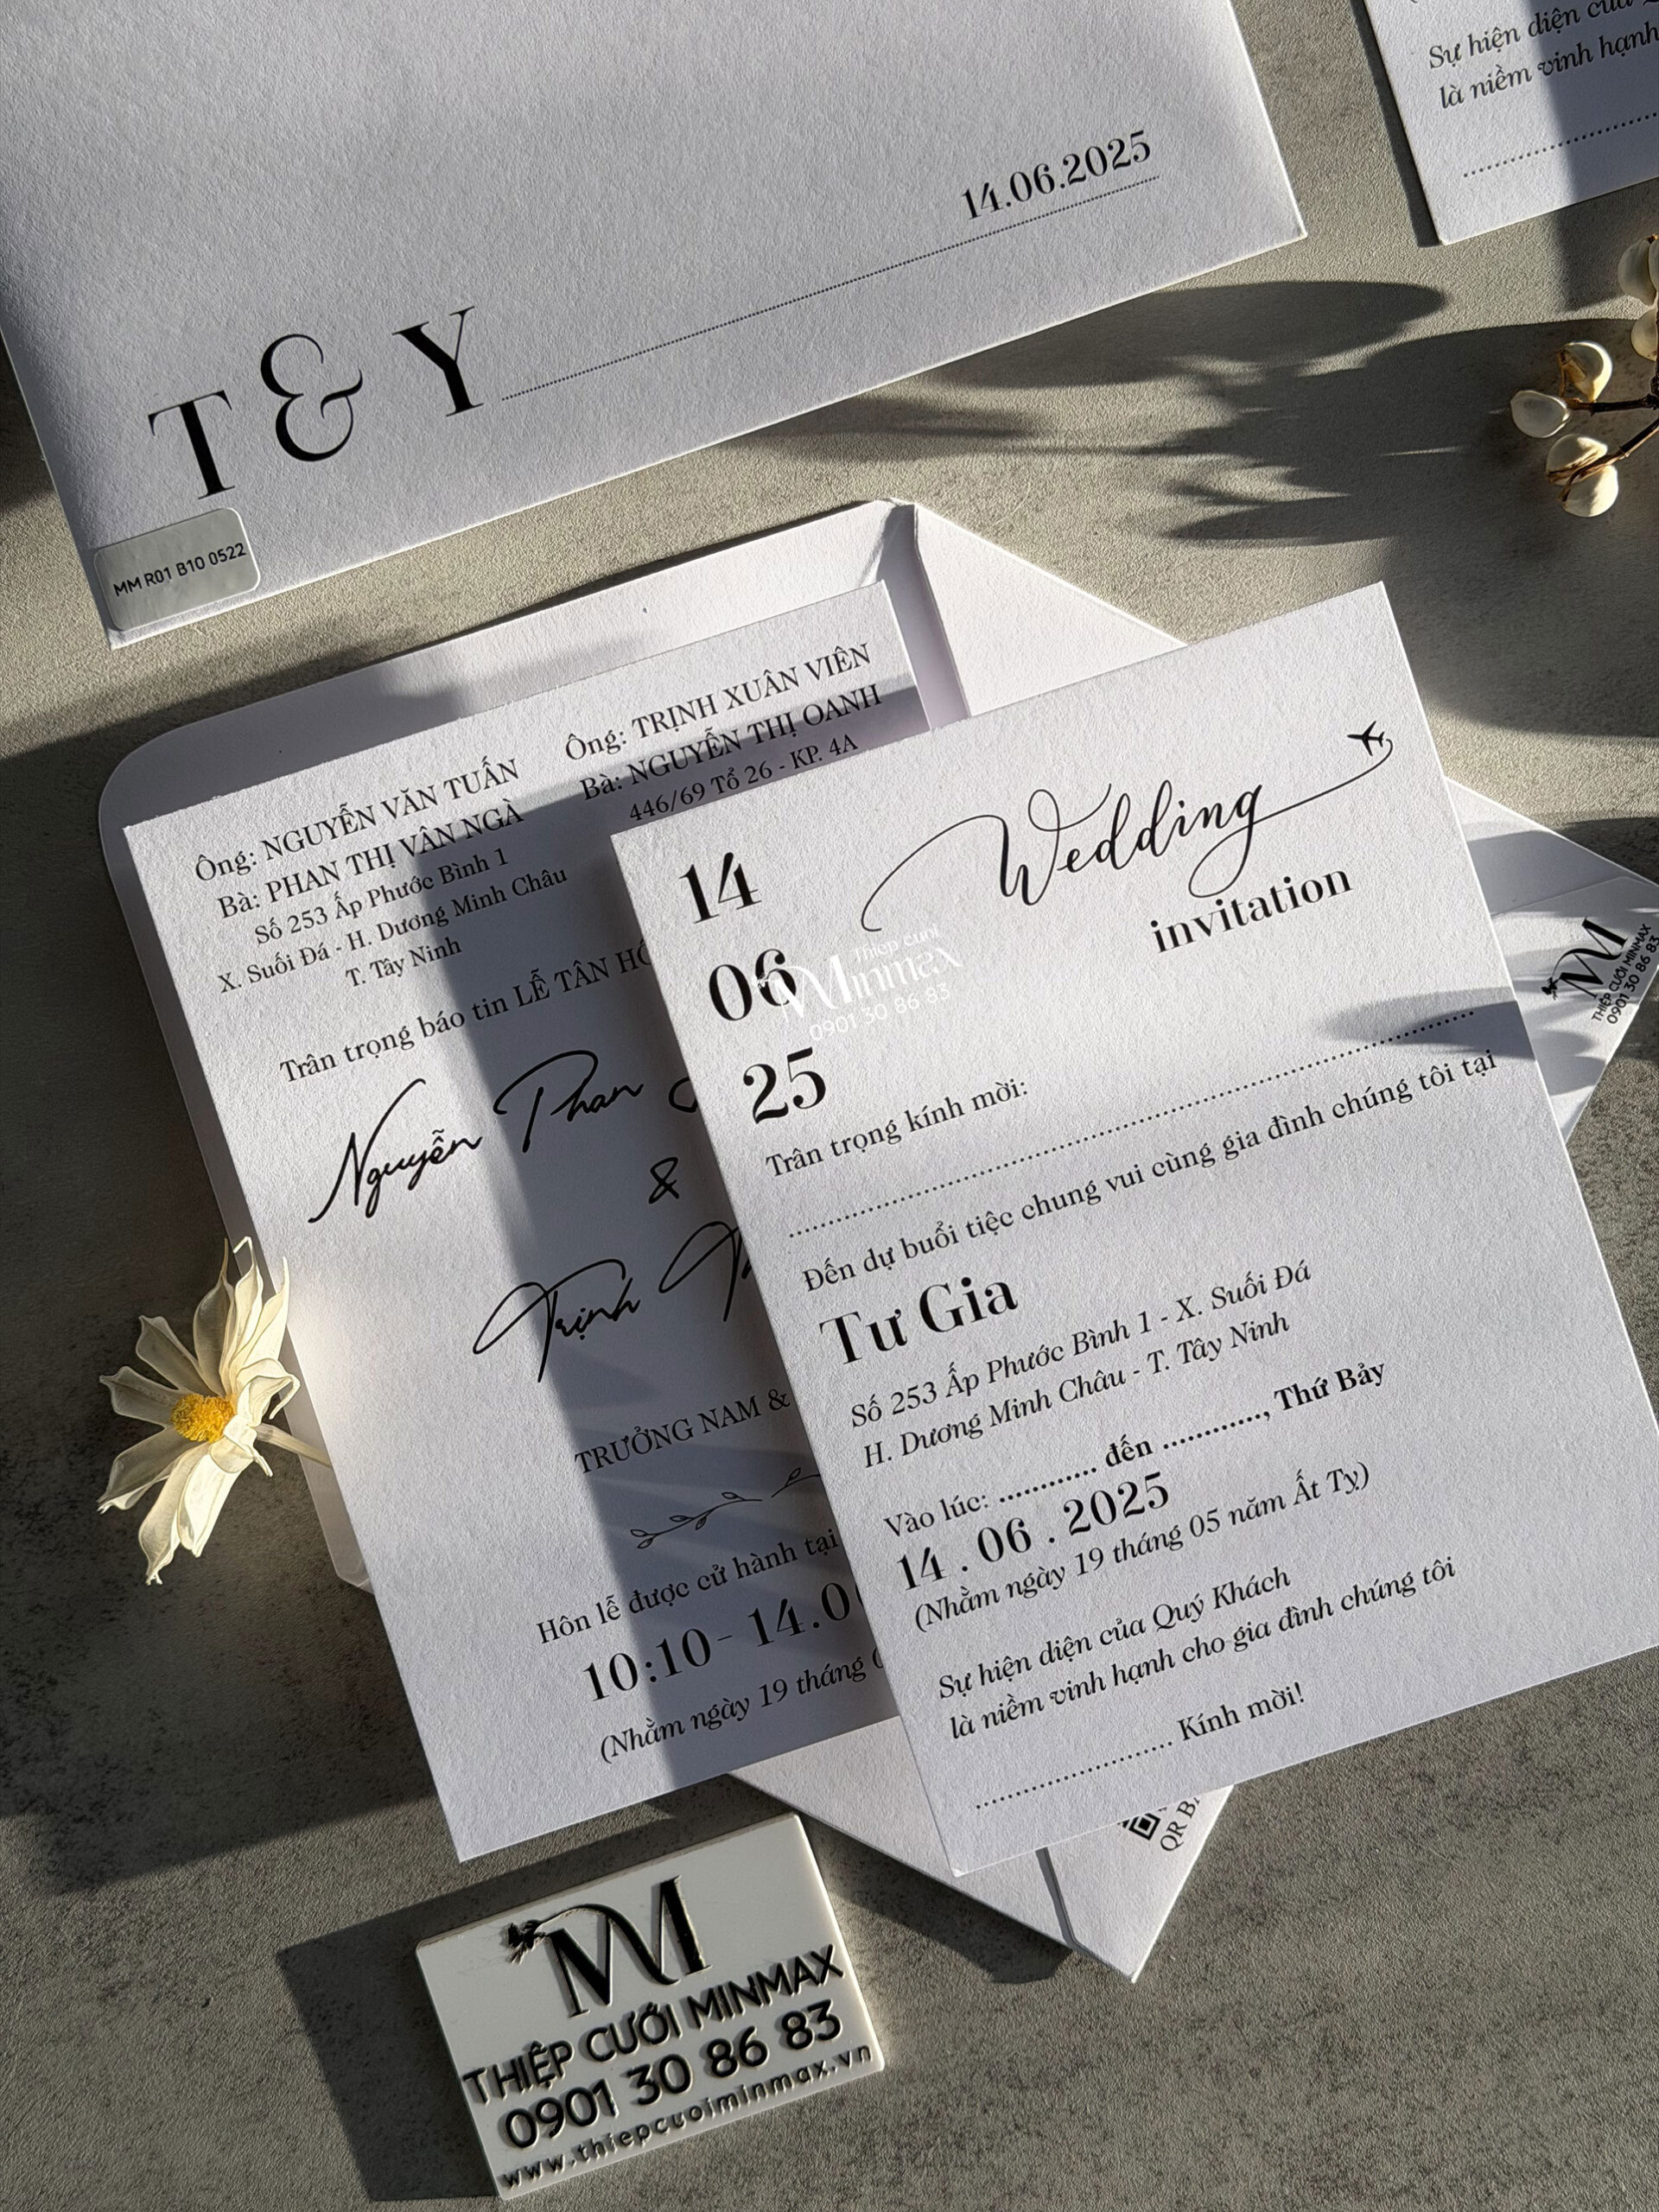 Sự hiện diện của
là niềm vinh hạnh
14.06.2025
T & Y
MM R01 B10 0522
Ông: NGUYỄN VĂN TUẤN
Bà: PHAN THỊ VÂN NGÀ
Số 253 Ấp Phước Bình 1
X. Suối Đá - H. Dương Minh Châu
T. Tây Ninh
Ông: TRỊNH XUÂN VIÊN
Bà: NGUYỄN THỊ OANH
446/69 Tổ 26 - KP. 4A
Trân trọng báo tin LỄ TÂN
Nguyễn Phan
&
Trịnh
TRƯỞNG NAM &
Hôn lễ được cử hành tại
10:10 - 14.0
(Nhằm ngày 19 tháng
Wedding
invitation
14
06
25
Thiep cuoi
Minmax
0901 30 86 83
Trân trọng kính mời:
Đến dự buổi tiệc chung vui cùng gia đình chúng tôi tại
Tư Gia
Số 253 Ấp Phước Bình 1 - X. Suối Đá
H. Dương Minh Châu - T. Tây Ninh
Vào lúc: ............ đến ............, Thứ Bảy
14 . 06 . 2025
(Nhằm ngày 19 tháng 05 năm Ất Tỵ)
Sự hiện diện của Quý Khách
là niềm vinh hạnh cho gia đình chúng tôi
........................ Kính mời!
M
THIỆP CƯỚI MINMAX
0901 30 86 83
QR
M
THIỆP CƯỚI MINMAX
0901 30 86 83
www.thiepcuoiminmax.vn